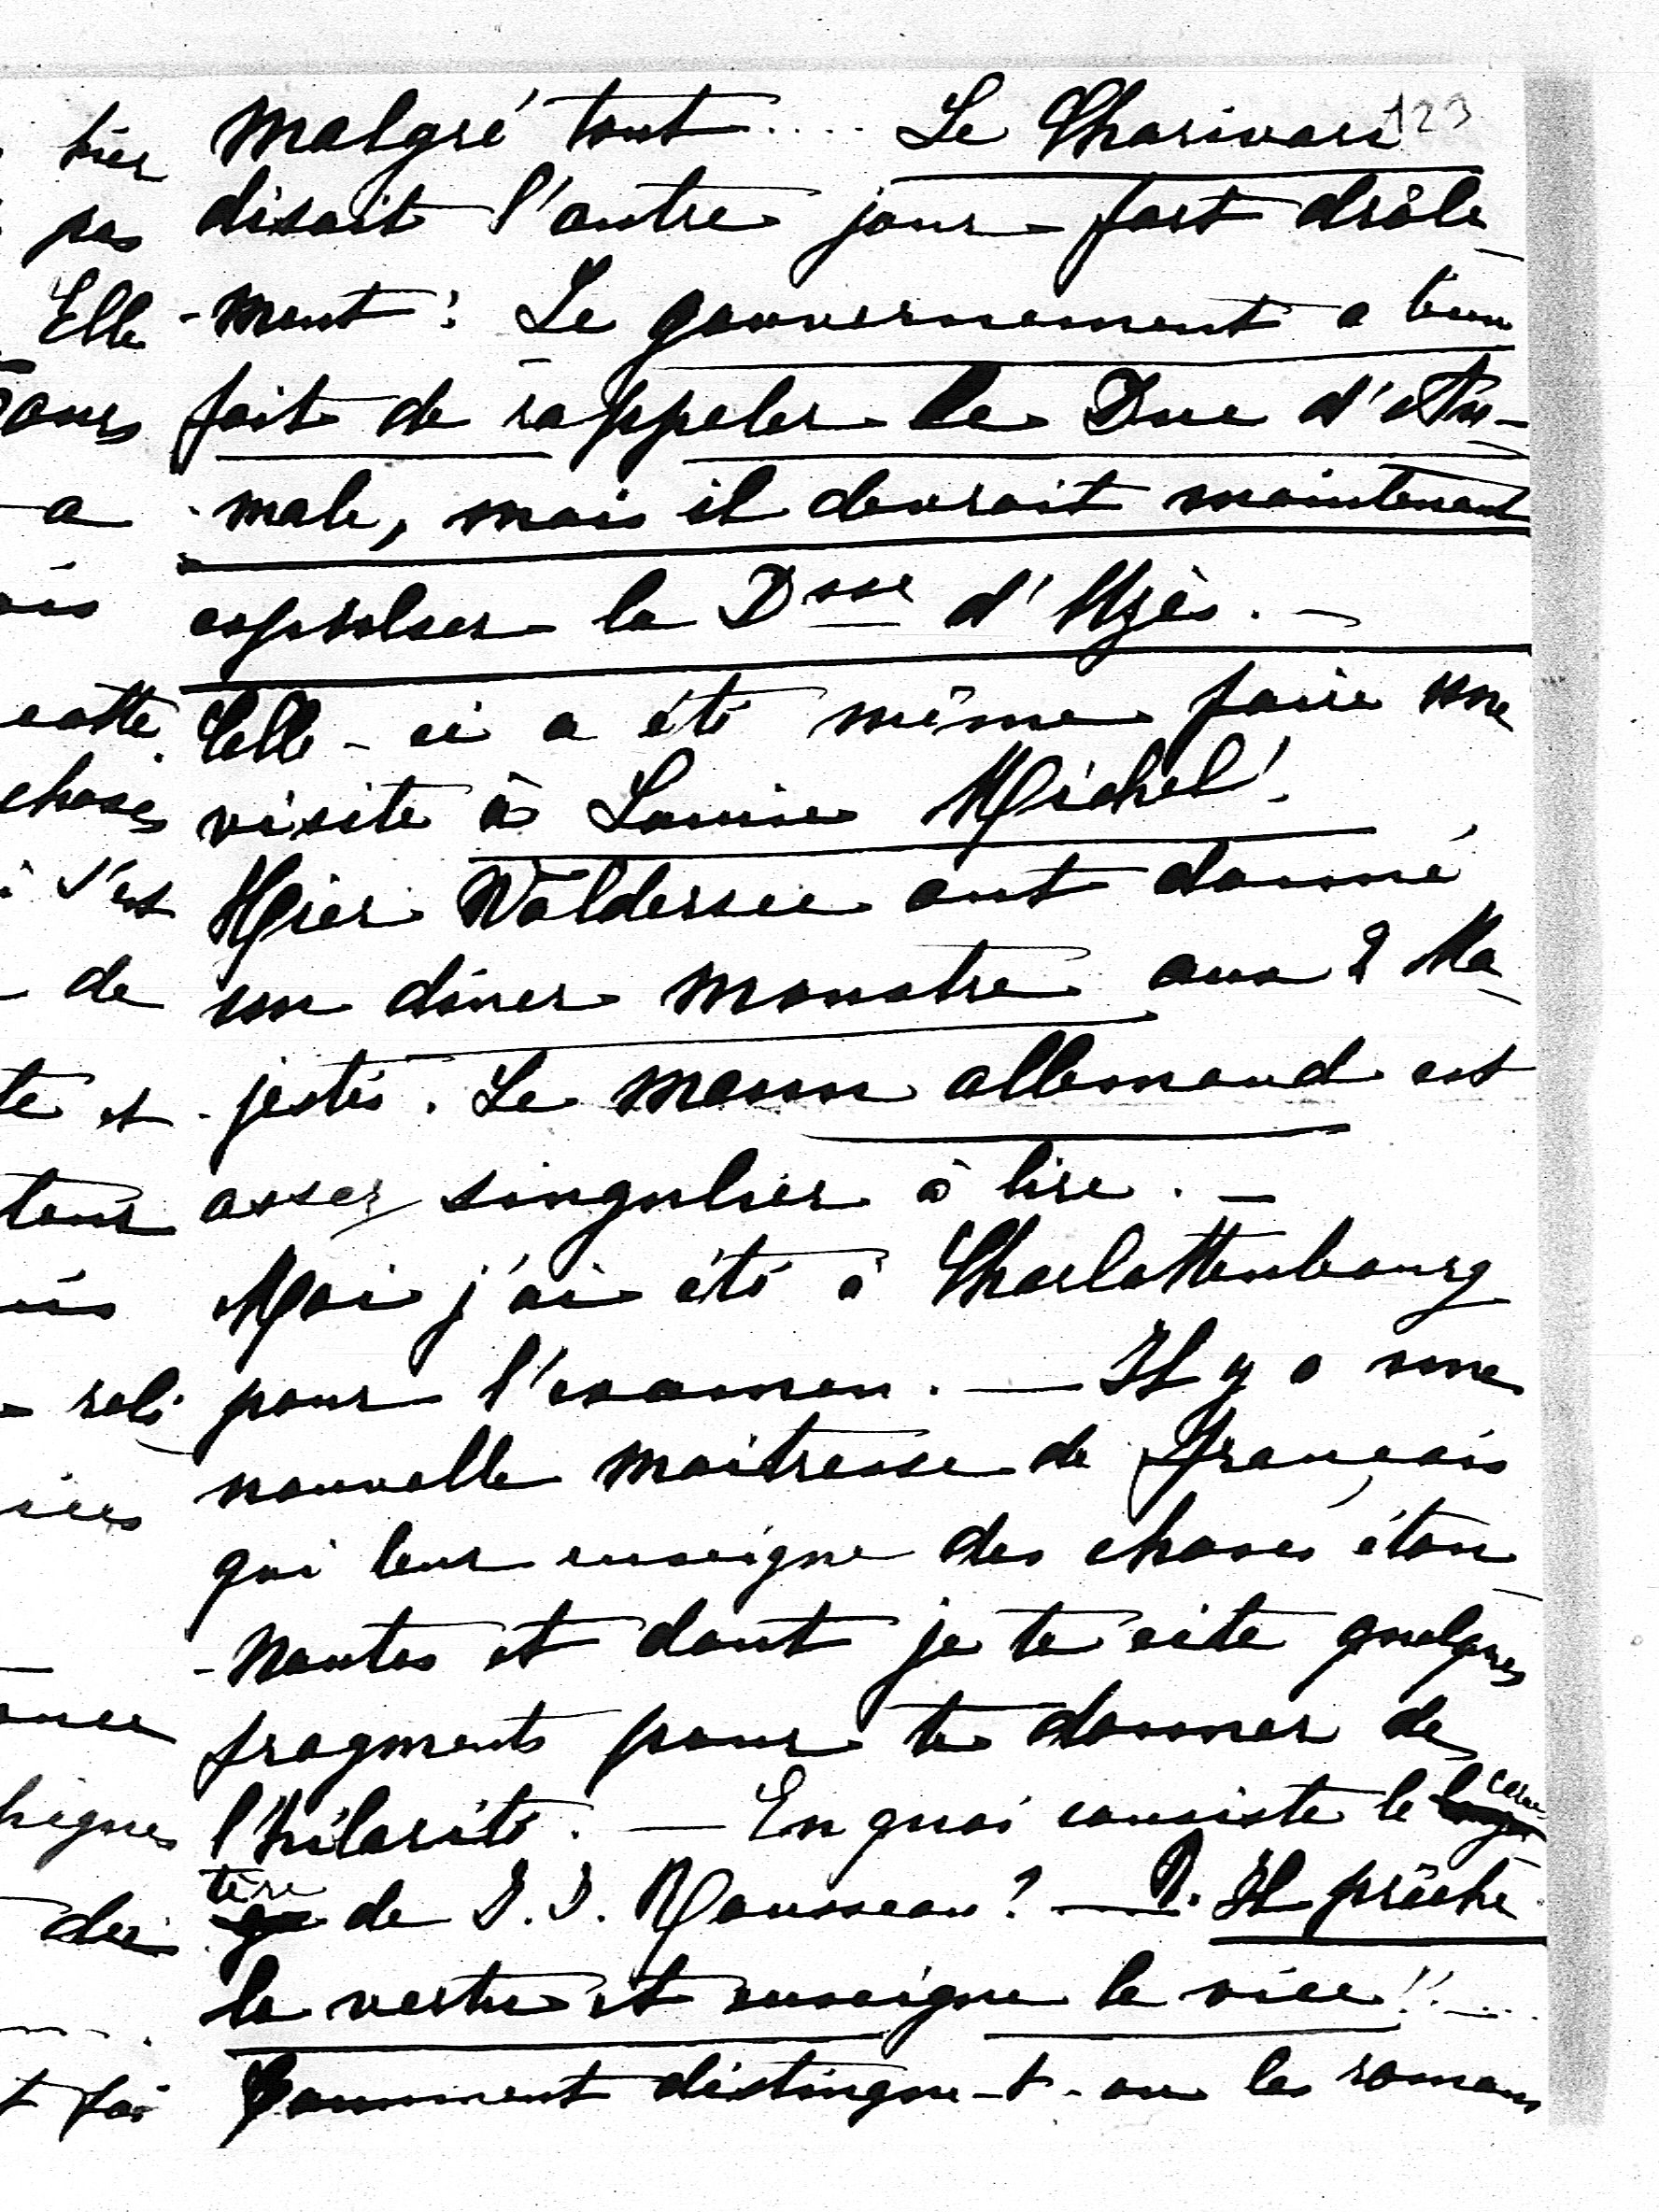 123
malgré tout..... Le Charivari
disait l'autre jour fort drôle-
-ment: Le gouvernement a bien
fait de rappeler le Duc d'Au-
-male, mais il devrait maintenant
expulser la Dsse d'Uzès. —
Celle-ci a été même faire une
visite à Louise Michel!
Hier Waldersee ont donné
un dîner monstre aux 2 Ma-
-jestés. Le menu allemand est
assez singulier à lire. —
Moi j'ai été à Charlottenbourg
pour l'examen. — Il y a une
nouvelle maitresse de français
qui leur enseigne des choses éton-
-nantes et dont je te cite quelques
fragments pour te donner de
l'hilarité. — En quoi consiste le carac-
tère de J. J. Rousseau? — R. Il prêche
la vertu et enseigne le vice!! ...
Comment distingue-t-on les romans
hier
pas
Elle
a
cette
choses
s'est
de
te et